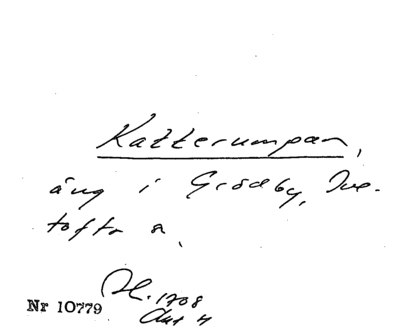 Katterumpan,
äng i Grödby, Tve-
tofta s.
Nr 10779
1708
Akt 4